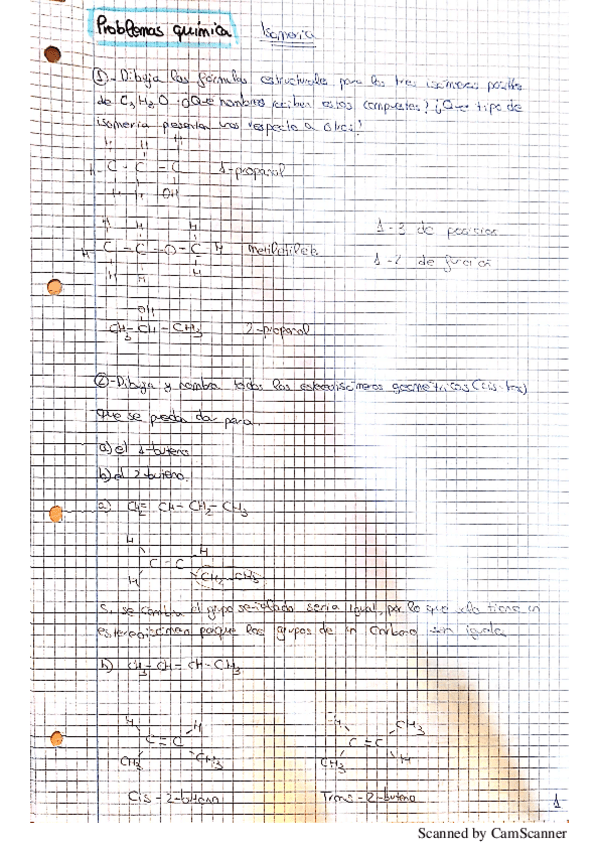 Problemas química Isomería
①-Dibuja las fórmulas estructurales para los tres isómeros posibles
de C3H8O ¿Qué nombres reciben estos compuestos? ¿Qué tipo de
isomería presentan unos respecto a otros?
H H H
H-C-C-C 1-propanol
H H OH
H H H
H C-C-O-C H
1-3 de posición
H H H
1-2 de función
OH
CH3-CH-CH3 2-propanol
②-Dibuja y nombra todos los estereoisómeros geométricos (cis-trans)
que se pueda dar para.
a) el 1-buteno
b) el 2-buteno.
a) CH2= CH-CH2-CH3
H H
C-C
H CH2-CH3
Si se cambia el grupo señalado sería igual, por lo que tiene un
porque los grupos de un carbono son iguales
b) CH3-CH-CH-CH3
H H
C=C
CH3 CH3
Cis-2-buteno
H CH3
C=C
CH3 H
Trans-2-buteno
1
Scanned by CamScanner